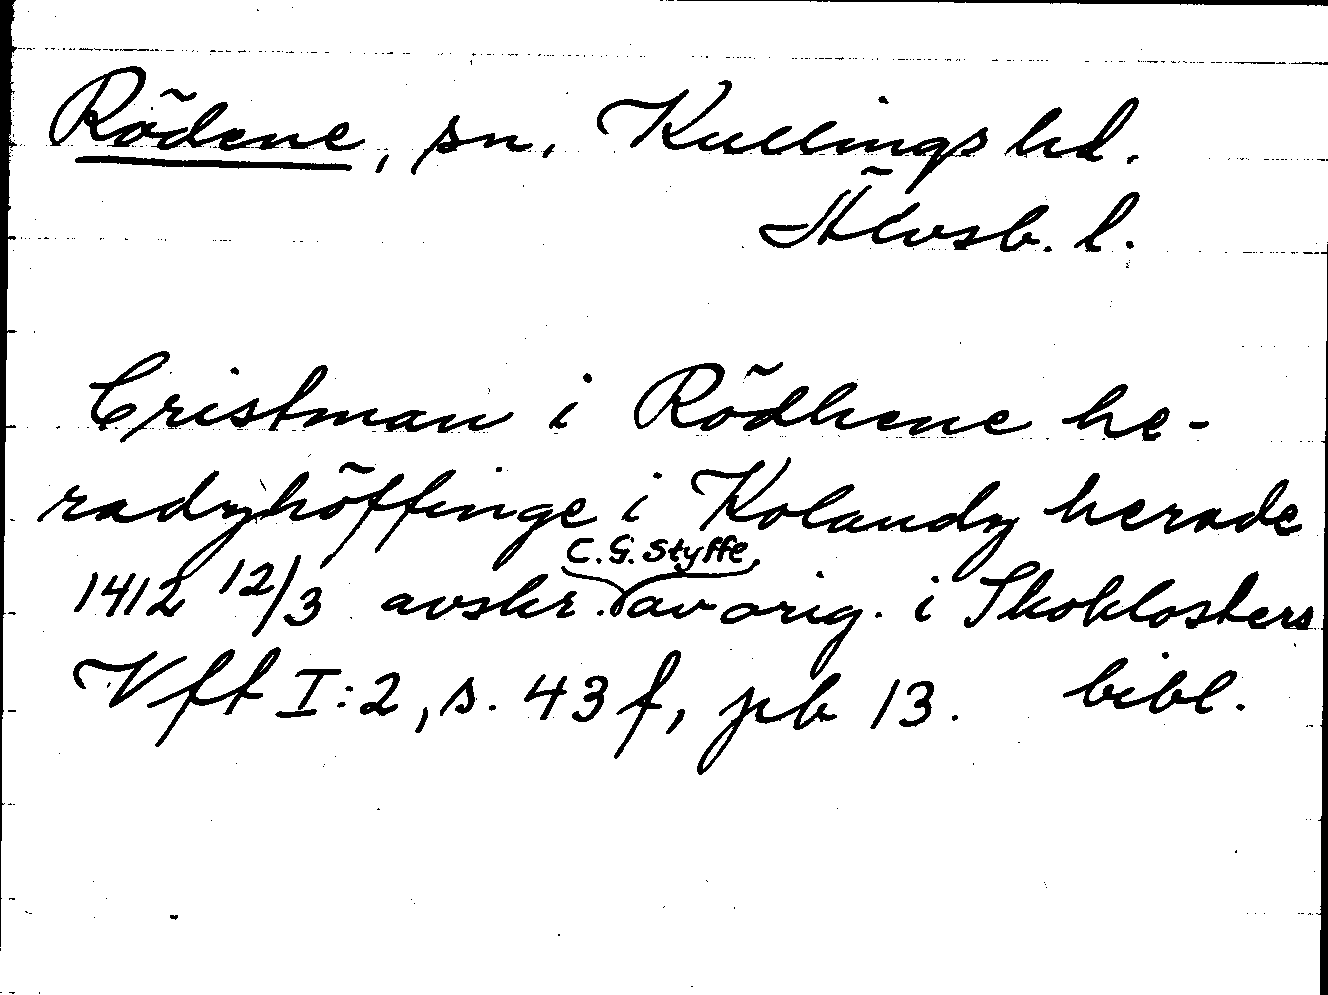 Rödene, sn, Kullings hd.
Älvsb. l.
Cristman i Rödhene he-
radzhöffinge i Kolandz herade
C. G. Styffe
1412 12/3 avskr. av orig. i Skoklosters
Vft I:2, s. 43 f, pb 13. bibl.